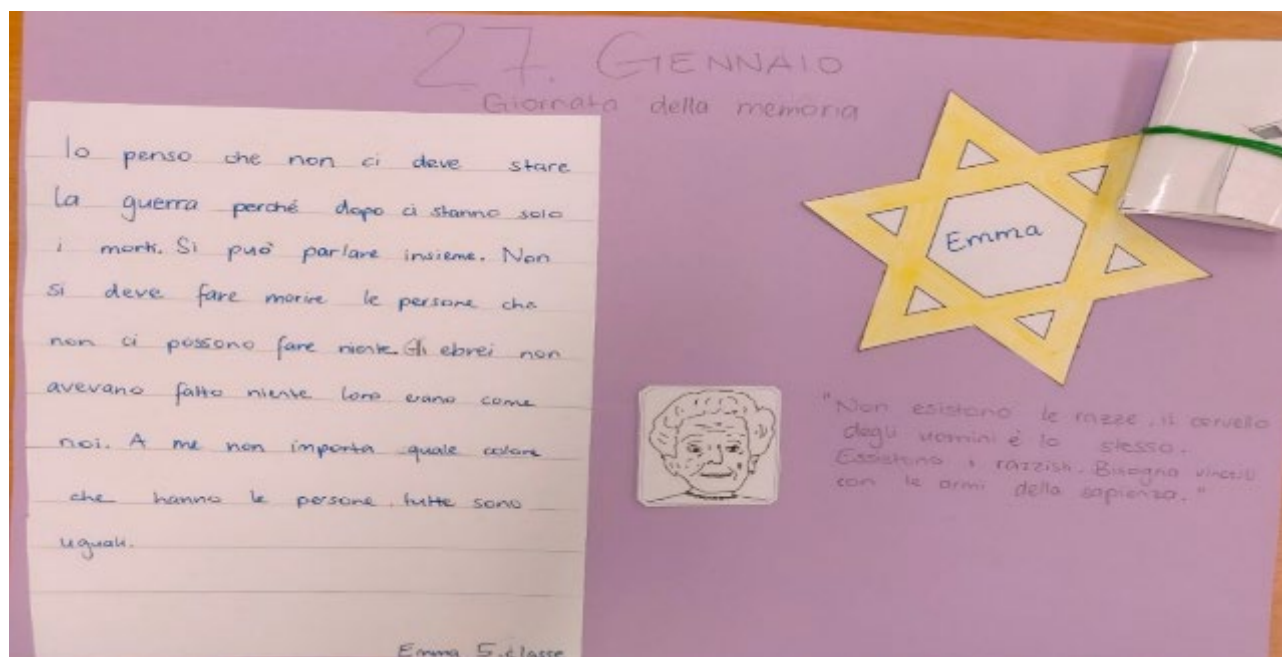 27. GENNAIO
Giornata della memoria
Io penso che non ci deve stare
la guerra perché dopo ci stanno solo
i morti. Si può parlare insieme. Non
si deve fare morire le persone che
non ci possono fare niente. Gli ebrei non
avevano fatto niente loro erano come
noi. A me non importa quale colore
che hanno le persone tutte sono
uguali.
Emma 5. classe
Emma
"Non esistono le razze, il cervello
degli uomini è lo stesso.
Esistono i razzisti. Bisogna vincerli
con le armi della sapienza."